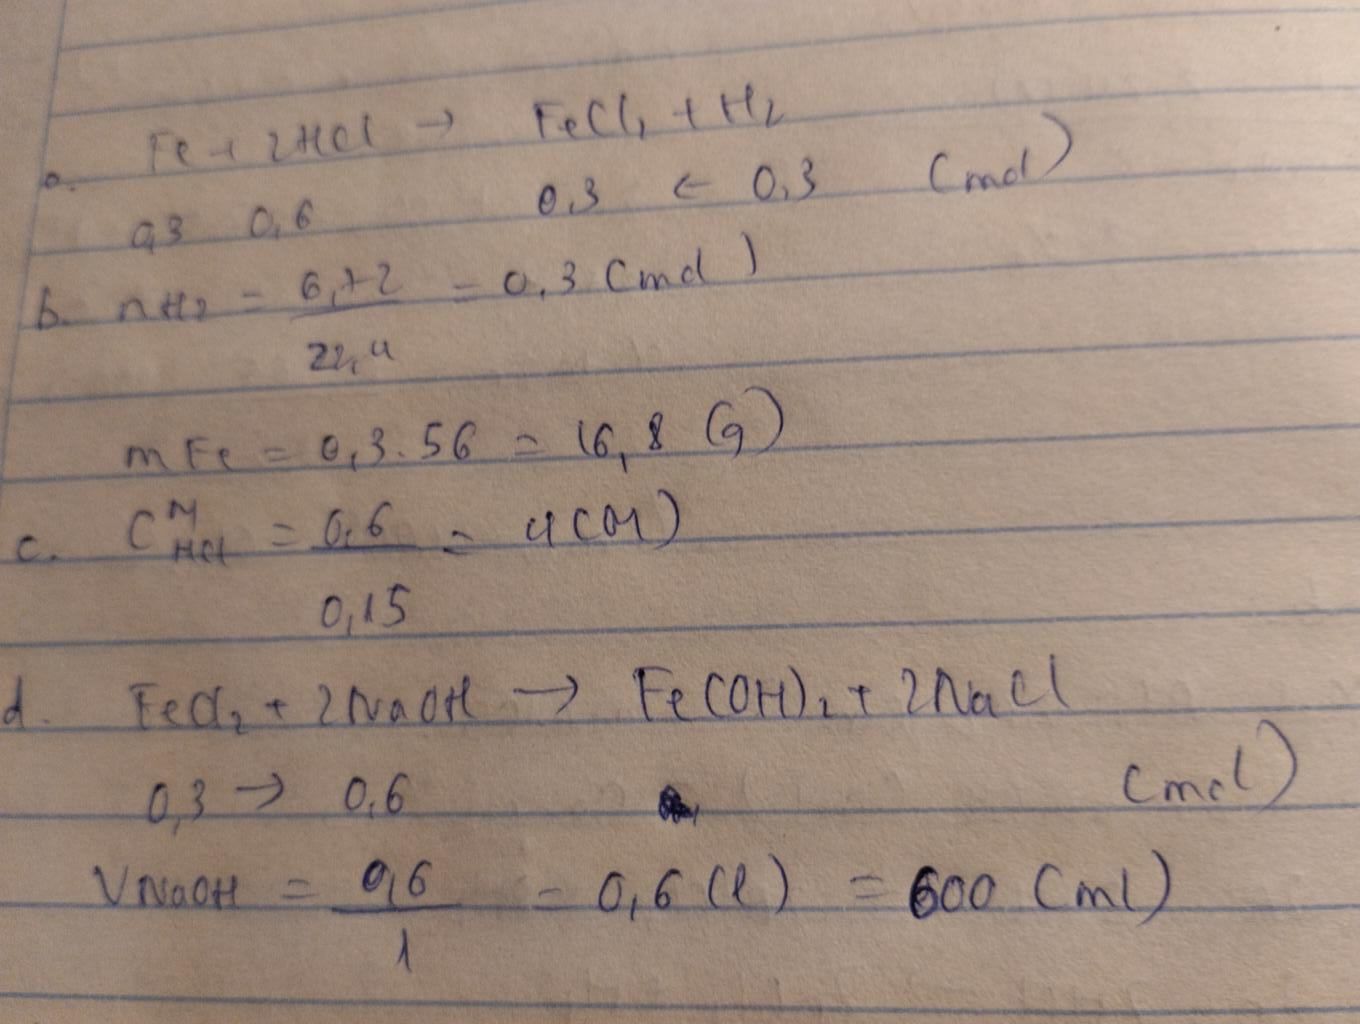 a. Fe + 2HCl → FeCl₂ + H₂
0,3 0,6 0,3 ← 0,3 (mol)
b. nH₂ = 6,72 / 22,4 = 0,3 (mol)
mFe = 0,3.56 = 16,8 (g)
c. C M HCl = 0,6 / 0,15 = 4 (M)
d. FeCl₂ + 2NaOH → Fe(OH)₂ + 2NaCl
0,3 → 0,6 (mol)
VNaOH = 0,6 / 1 = 0,6 (l) = 600 (ml)